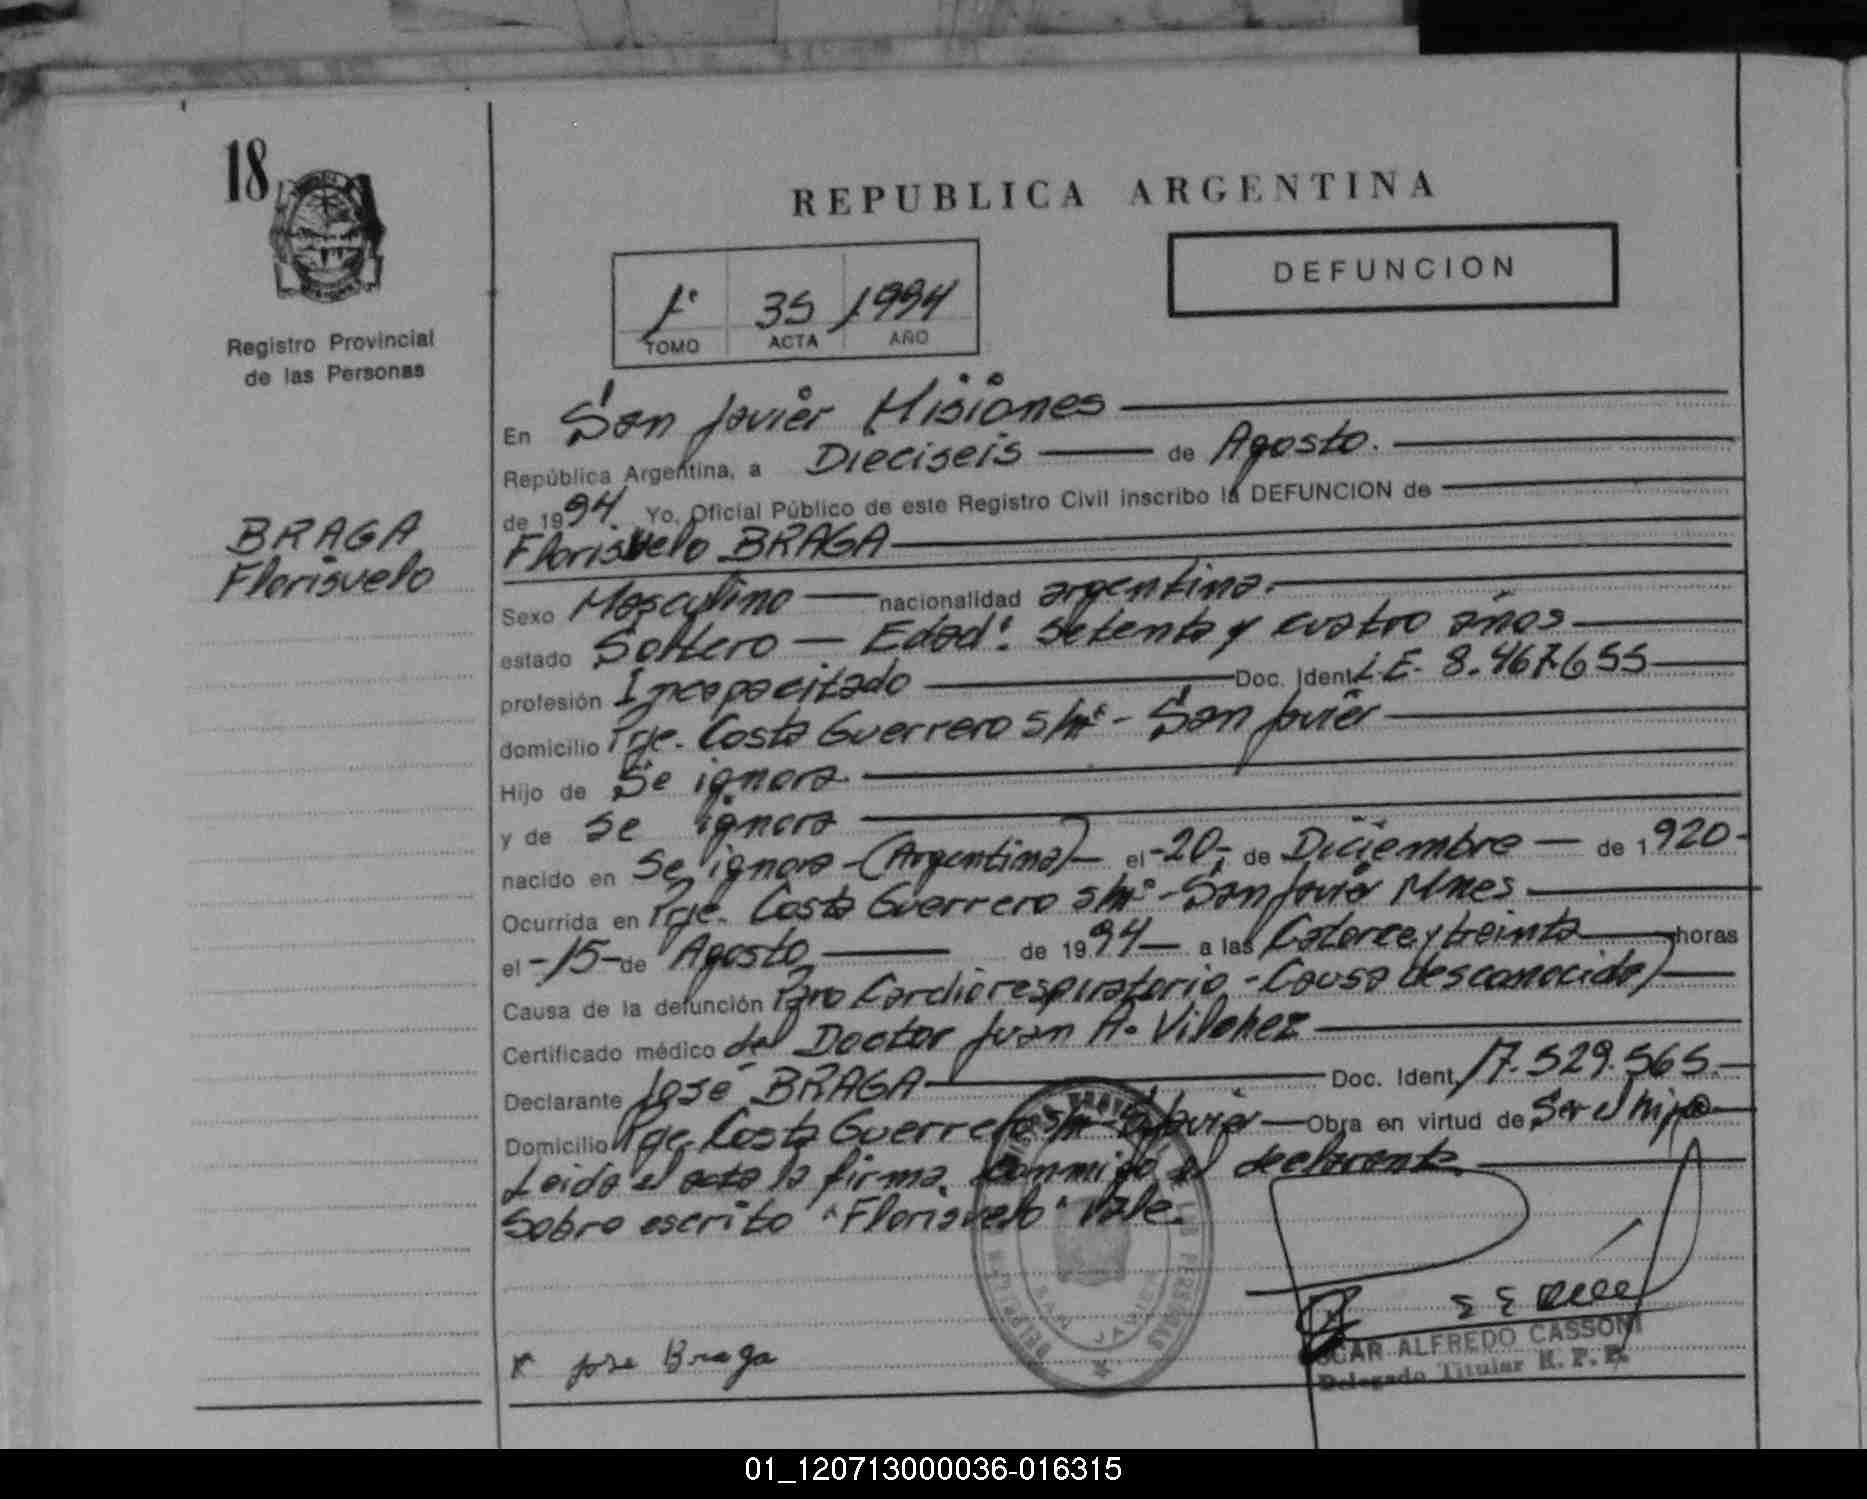 18
REPUBLICA ARGENTINA
DEFUNCION
1° 35 1994
TOMO ACTA AÑO
Registro Provincial
de las Personas
BRAGA
Florisvelo
En San Javier Misiones
República Argentina, a Dieciseis de Agosto.
de 1994. Yo, Oficial Público de este Registro Civil inscribo la DEFUNCION de
Florisvelo BRAGA
Sexo Masculino nacionalidad argentina.
estado Soltero — Edad: setenta y cuatro años
profesión Incapacitado Doc. Ident. L.E. 8.467.655
domicilio Pje. Costa Guerrero s/n° - San Javier
Hijo de Se ignora
y de se ignora
nacido en Se ignora - (Argentina) el -20- de Diciembre de 1920-
Ocurrida en Pje. Costa Guerrero s/n° - San Javier Mnes
el -15- de Agosto de 1994 a las Catorce y treinta horas
Causa de la defunción Paro Cardiorespiratorio - Causa desconocida)
Certificado médico del Doctor Juan A. Vilchez
Declarante José BRAGA Doc. Ident. 17.529.565.
Domicilio Pje. Costa Guerrero s/n - S. Javier — Obra en virtud de Ser el hijo
Leida el acta la firma conmigo el declarante.
Sobre escrito "Florisvelo" Vale.
SAN JAVIER
x Jose Braga
OSCAR ALFREDO CASSONI
Delegado Titular R. P. P.
01_120713000036-016315